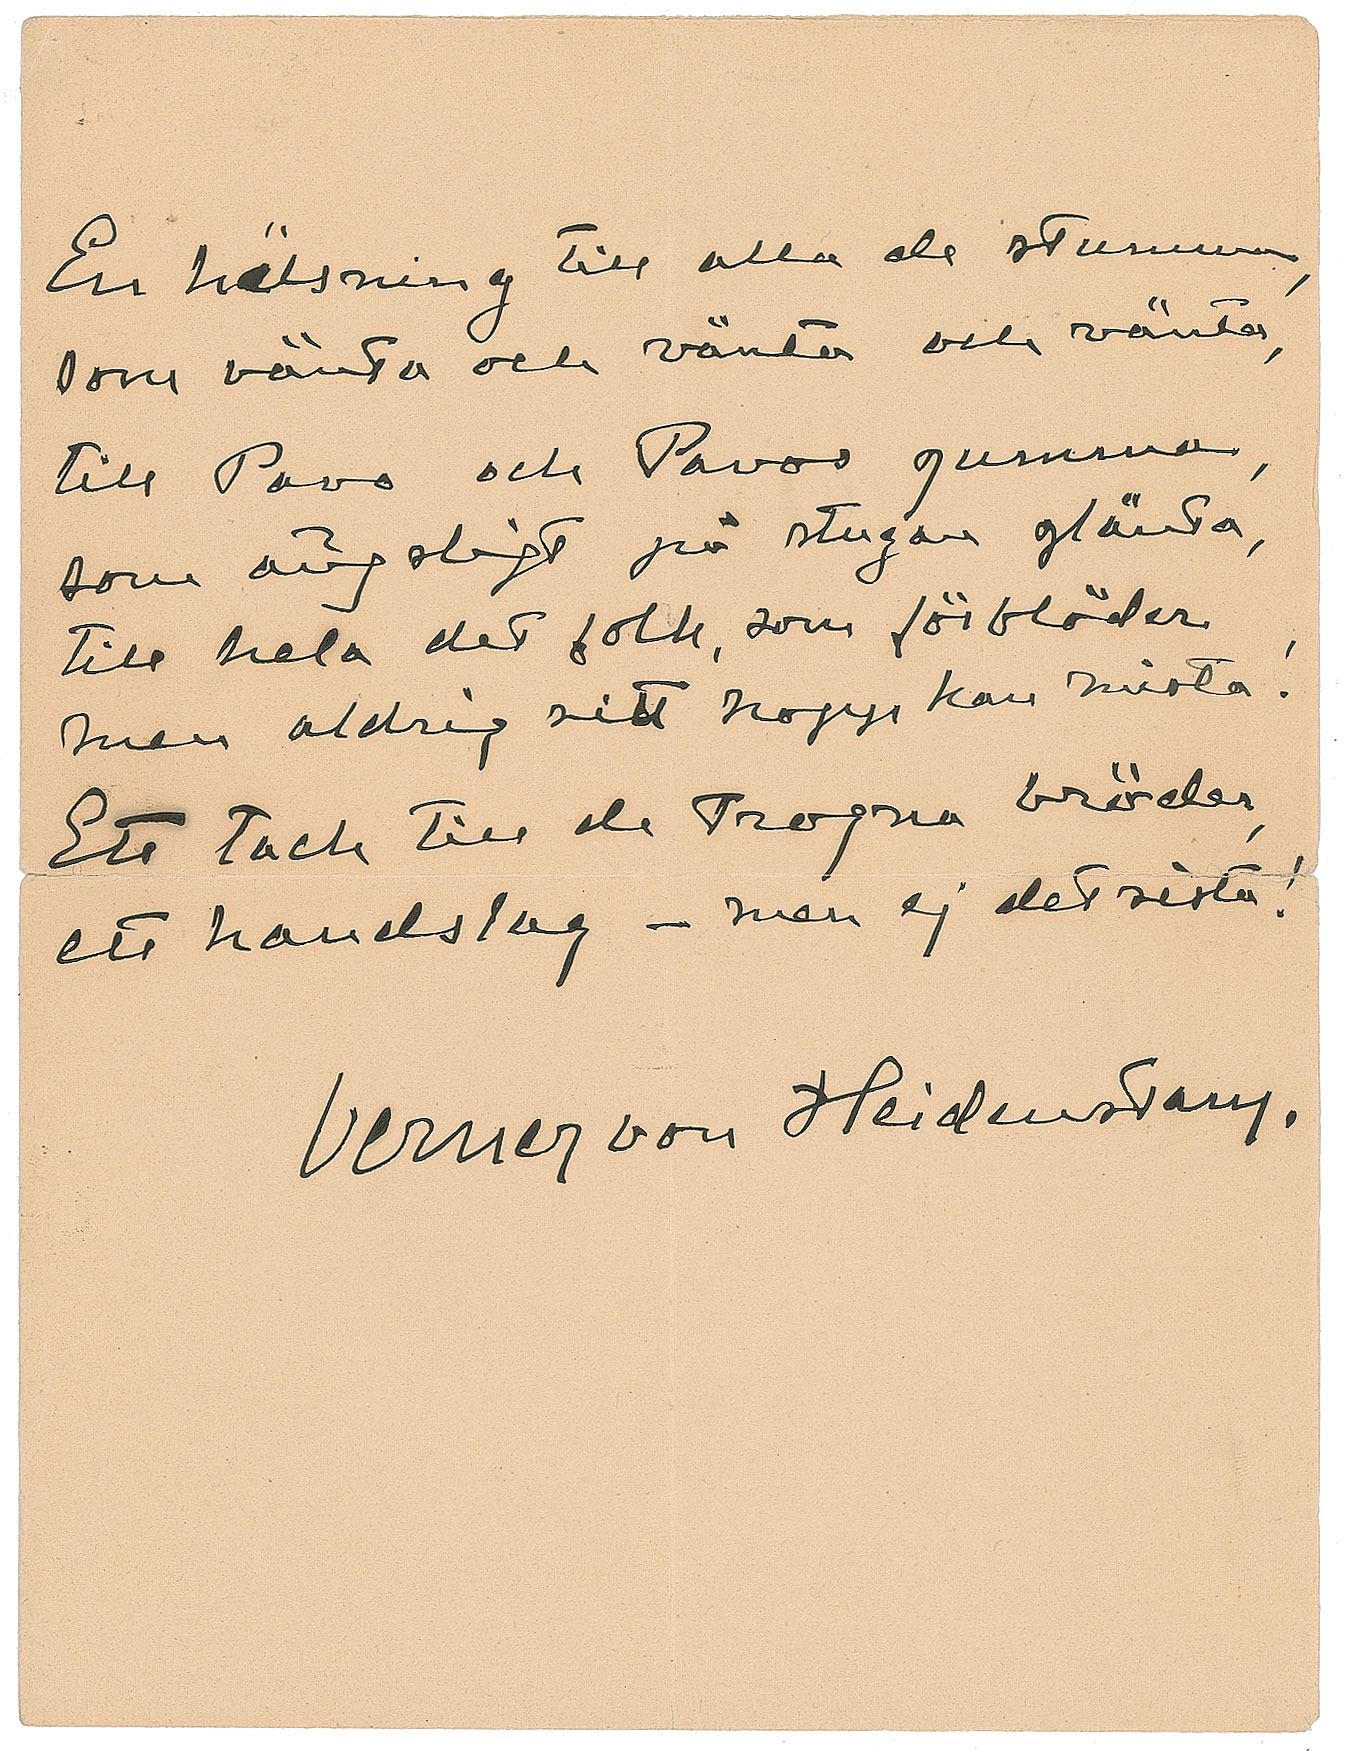 En hälsning till alla de stumma,
som vänta och vänta och vänta,
till Pavo och Pavos gumma,
som ängsligt på stugan glänta,
till hela det folk, som förblöder
men aldrig sitt hopp kan mista!
Ett tack till de trogna bröder,
ett handslag – men ej det sista!
Verner von Heidenstam.